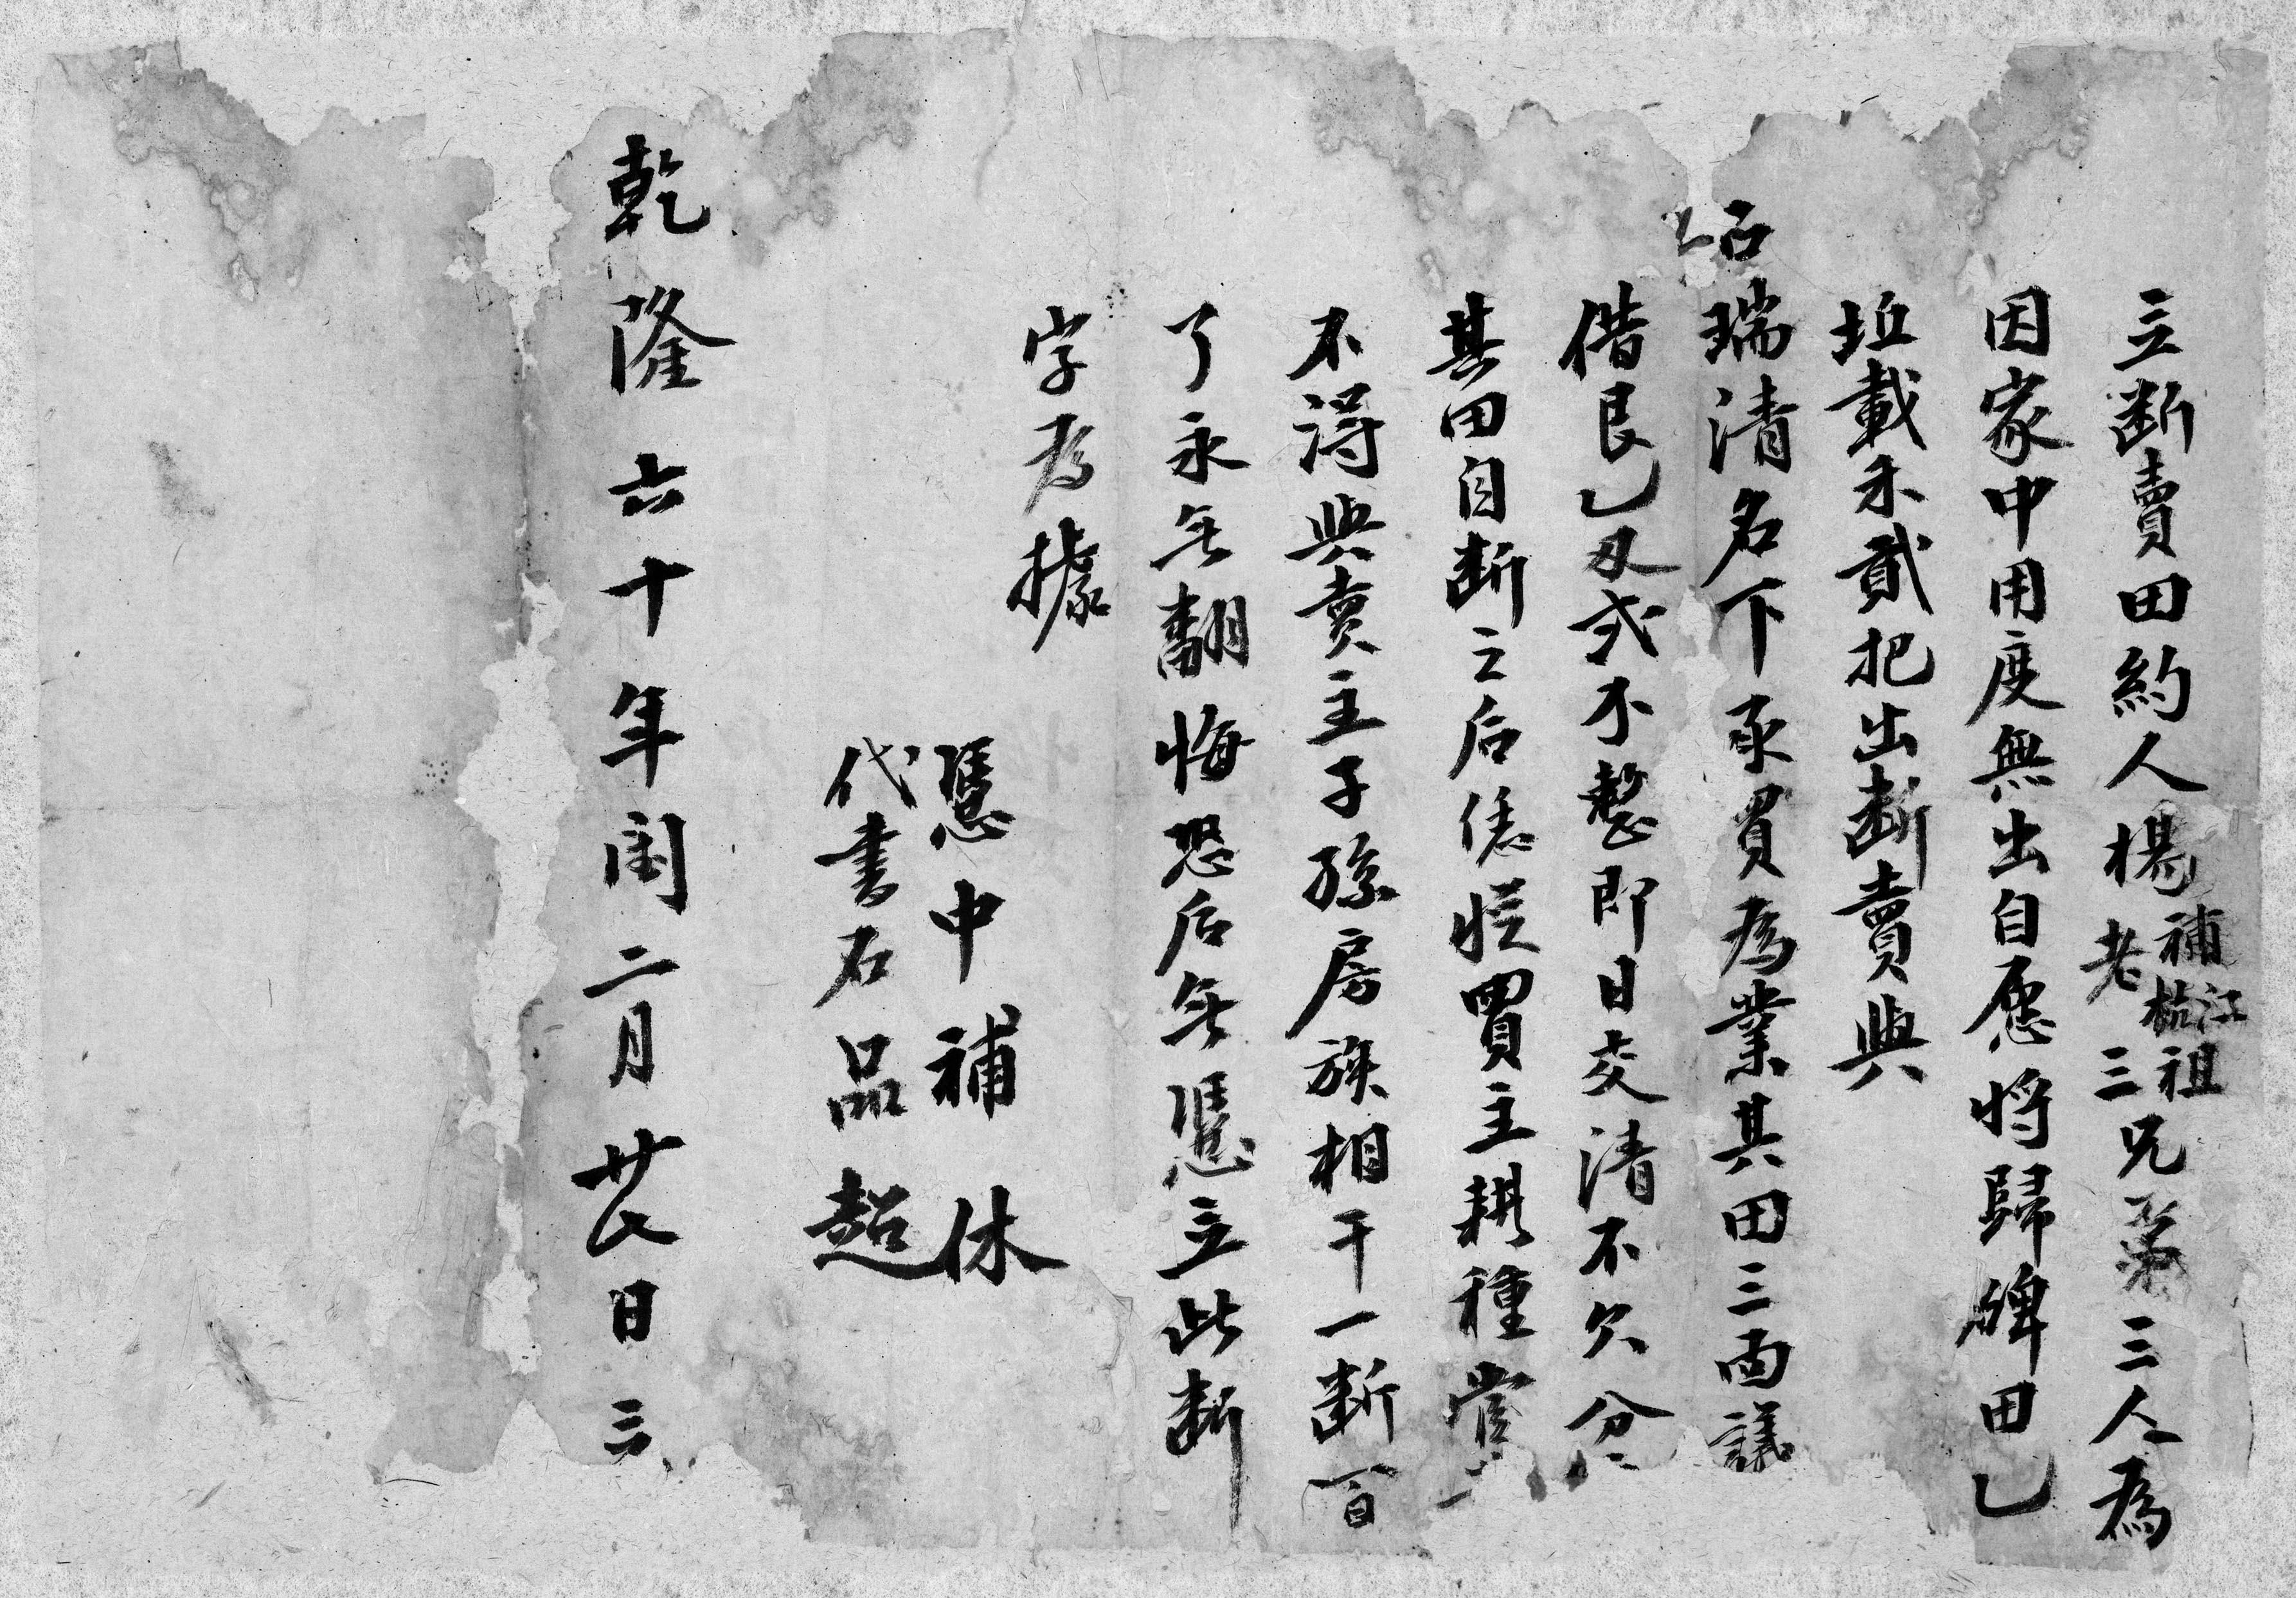 立断賣田約人楊補江老枯祖三兄弟三人為
因家中用度無出自愿将歸碑田乙
坵載禾貳把出断賣與
石瑞清名下承買為業其田三面議
借艮乙刄弍不整即日交清不欠分
其田自断之后凴從買主耕種管
不淂與賣主子孫房族相干一断百
了永無翻悔恐后無憑立此断
字為據
憑中補休
代書石品超
乾隆六十年閏二月廿八日立